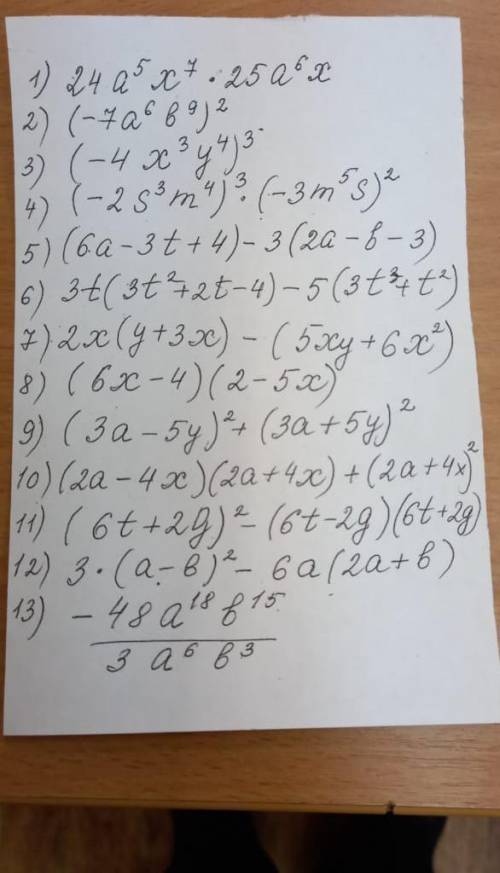 1) 24a⁵x⁷·25a⁶x
2) (-7a⁶в⁹)²
3) (-4x³y⁴)³
4) (-2s³m⁴)³·(-3m⁵s)²
5) (6a-3t+4)-3(2a-в-3)
6) 3t(3t²+2t-4)-5(3t³+t²)
7) 2x(y+3x)-(5xy+6x²)
8) (6x-4)(2-5x)
9) (3a-5y)²+(3a+5y)²
10) (2a-4x)(2a+4x)+(2a+4x)²
11) (6t+2g)²-(6t-2g)(6t+2g)
12) 3·(a-в)²-6a(2a+в)
13) -48a¹⁸в¹⁵
3a⁶в³